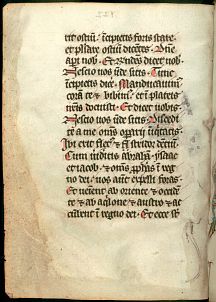 rit ostiū incipietis foris stare
et pulsare ostiū dicētes. Dñe
aperi nob. Et rñdēs dicet nob.
Nescio vos ūde sitis. Tunc
incipietis dice. Manducauim
corā te et bibim et in plateis
nr̄is docuisti. Et dicet nobis.
Nescio vos ūde sitis. Discedi
te a me om̄s operarij iniqtatis.
Ibi erit flet et stridor dentiū.
Cum uideritis abrahā ysaac
et iacob et om̄s prophās in reg
no dei. vos aut expelli foras.
Et veniēt ab oriente et occidē
te et ab aqlone et austro et ac
cūbent in regno dei. Et ecce st